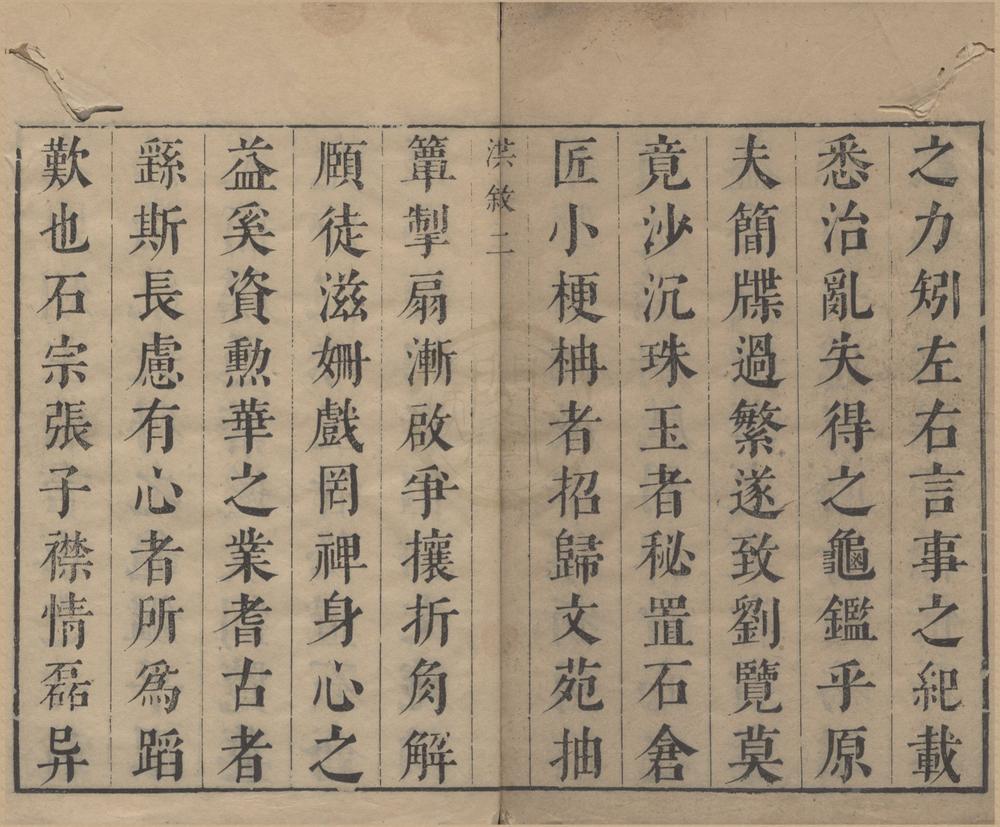 之力矧左右言事之紀載
悉治亂失得之龜鑑乎原
夫簡牒過繁遂致劉覽莫
竟沙沉珠玉者秘置石倉
匠小梗柟者招歸文苑抽
洪敘二
簞掣扇漸啟爭攘折角解
頤徒滋姍戲罔裨身心之
益奚資勳華之業耆古者
繇斯長慮有心者所爲蹈
歎也石宗張子襟情磊异